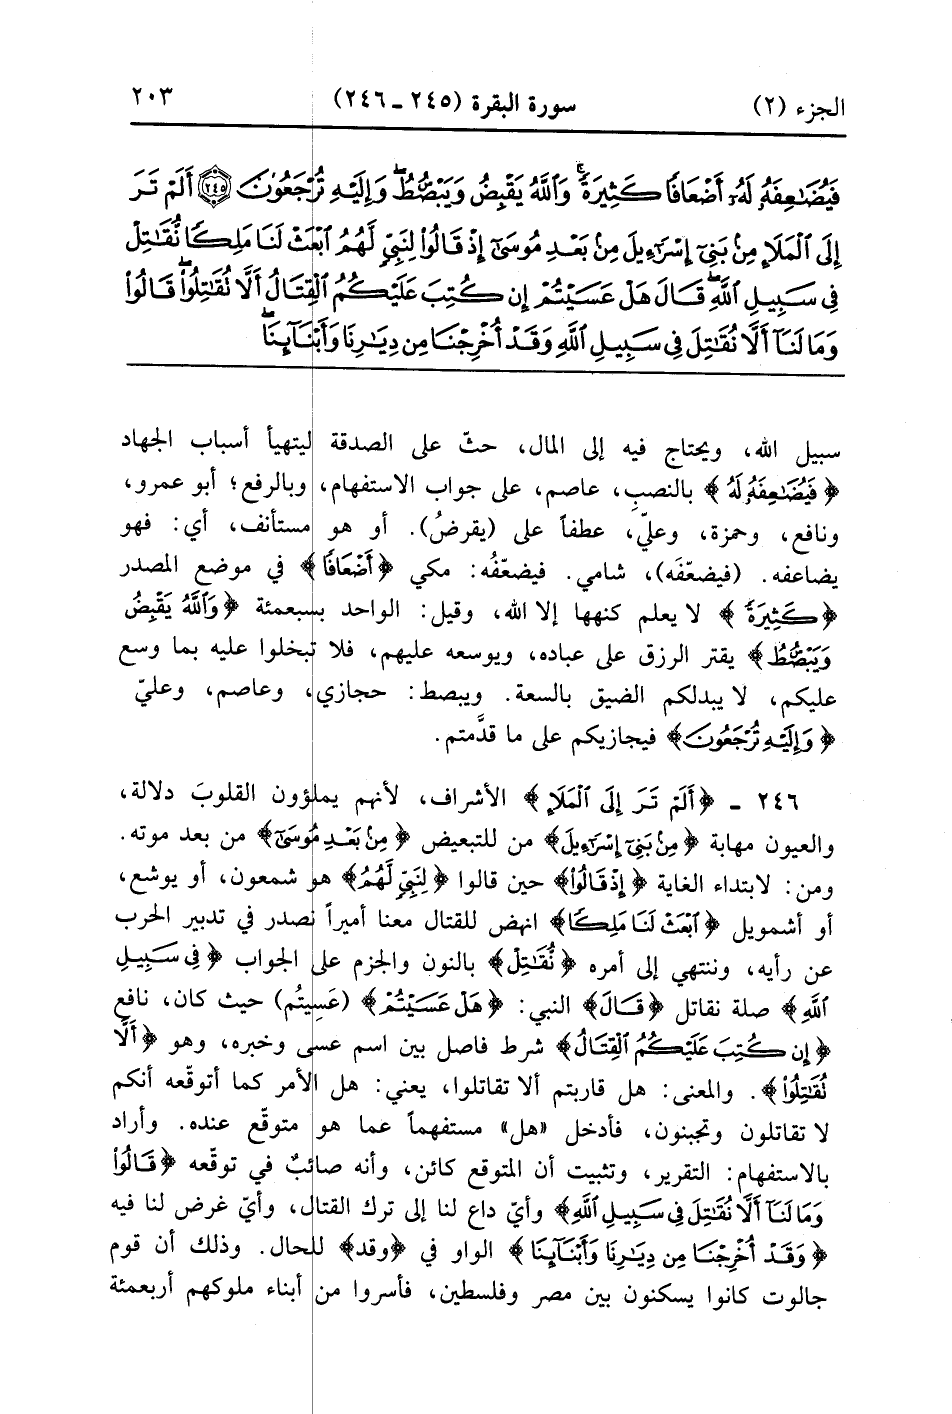 الجزء (٢) سورة البقرة (٢٤٥ - ٢٤٦) ٢٠٣
فَيُضَٰعِفَهُۥ لَهُۥٓ أَضۡعَافٗا كَثِيرَةٗۚ وَٱللَّهُ يَقۡبِضُ وَيَبۡصُۜطُ وَإِلَيۡهِ تُرۡجَعُونَ ٢٤٥ أَلَمۡ تَرَ
إِلَى ٱلۡمَلَإِ مِنۢ بَنِيٓ إِسۡرَٰٓءِيلَ مِنۢ بَعۡدِ مُوسَىٰٓ إِذۡ قَالُواْ لِنَبِيّٖ لَّهُمُ ٱبۡعَثۡ لَنَا مَلِكٗا نُّقَٰتِلۡ
فِي سَبِيلِ ٱللَّهِۖ قَالَ هَلۡ عَسَيۡتُمۡ إِن كُتِبَ عَلَيۡكُمُ ٱلۡقِتَالُ أَلَّا تُقَٰتِلُواْۖ قَالُواْ
وَمَا لَنَآ أَلَّا نُقَٰتِلَ فِي سَبِيلِ ٱللَّهِ وَقَدۡ أُخۡرِجۡنَا مِن دِيَٰرِنَا وَأَبۡنَآئِنَاۖ
سبيل الله، ويحتاج فيه إلى المال، حثّ على الصدقة ليتهيأ أسباب الجهاد
﴿فَيُضَٰعِفَهُ لَهُ﴾ بالنصبِ، عاصم، على جواب الاستفهام، وبالرفع؛ أبو عمرو،
ونافع، وحمزة، وعليّ، عطفاً على (يقرضُ). أو هو مستأنف، أي: فهو
يضاعفه. (فيضعّفَه)، شامي. فيضعّفُه: مكي ﴿أَضۡعَافٗا﴾ في موضع المصدر
﴿كَثِيرَةٗ﴾ لا يعلم كنهها إلا الله، وقيل: الواحد بسبعمئة ﴿وَٱللَّهُ يَقۡبِضُ
وَيَبۡصُۜطُ﴾ يقتر الرزق على عباده، ويوسعه عليهم، فلا تبخلوا عليه بما وسع
عليكم، لا يبدلكم الضيق بالسعة. ويبصط: حجازي، وعاصم، وعليّ
﴿وَإِلَيۡهِ تُرۡجَعُونَ﴾ فيجازيكم على ما قدَّمتم.
٢٤٦ - ﴿أَلَمۡ تَرَ إِلَى ٱلۡمَلَإِ﴾ الأشراف، لأنهم يملؤون القلوبَ دلالة،
والعيون مهابة ﴿مِنۢ بَنِيٓ إِسۡرَٰٓءِيلَ﴾ من للتبعيض ﴿مِنۢ بَعۡدِ مُوسَىٰٓ﴾ من بعد موته.
ومن: لابتداء الغاية ﴿إِذۡ قَالُواْ﴾ حين قالوا ﴿لِنَبِيّٖ لَّهُمُ﴾ هو شمعون، أو يوشع،
أو أشمويل ﴿ٱبۡعَثۡ لَنَا مَلِكٗا﴾ انهض للقتال معنا أميراً نصدر في تدبير الحرب
عن رأيه، وننتهي إلى أمره ﴿نُّقَٰتِلۡ﴾ بالنون والجزم على الجواب ﴿فِي سَبِيلِ
ٱللَّهِ﴾ صلة نقاتل ﴿قَالَ﴾ النبي: ﴿هَلۡ عَسَيۡتُمۡ﴾ (عَسِيتُم) حيث كان، نافع
﴿إِن كُتِبَ عَلَيۡكُمُ ٱلۡقِتَالُ﴾ شرط فاصل بين اسم عسى وخبره، وهو ﴿أَلَّا
تُقَٰتِلُواْ﴾. والمعنى: هل قاربتم ألا تقاتلوا، يعني: هل الأمر كما أتوقّعه أنكم
لا تقاتلون وتجبنون، فأدخل «هل» مستفهماً عما هو متوقع عنده. وأراد
بالاستفهام: التقرير، وتثبيت أن المتوقع كائن، وأنه صائبٌ في توقعه ﴿قَالُواْ
وَمَا لَنَآ أَلَّا نُقَٰتِلَ فِي سَبِيلِ ٱللَّهِ﴾ وأيّ داع لنا إلى ترك القتال، وأيّ غرض لنا فيه
﴿وَقَدۡ أُخۡرِجۡنَا مِن دِيَٰرِنَا وَأَبۡنَآئِنَا﴾ الواو في ﴿وقد﴾ للحال. وذلك أن قوم
جالوت كانوا يسكنون بين مصر وفلسطين، فأسروا من أبناء ملوكهم أربعمئة